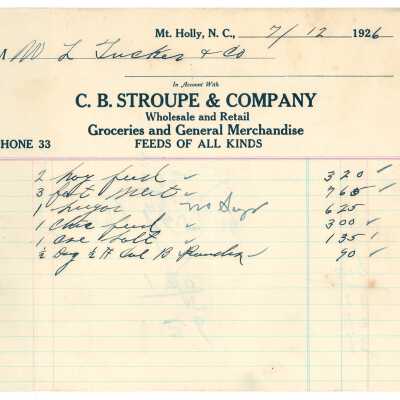 Mt. Holly, N. C., 7/12 1926
M W L Tucker & Co
In Account With
C. B. STROUPE & COMPANY
Wholesale and Retail
Groceries and General Merchandise
PHONE 33 FEEDS OF ALL KINDS
2 hog feed ✓ 3 20 ✓
3 fat meat ✓ 7 65 ✓
1 sugar no 6 25
1 feed ✓ 3 00 ✓
1 salt ✓ 1 35
½ ½ B Powder ✓ 90 ✓